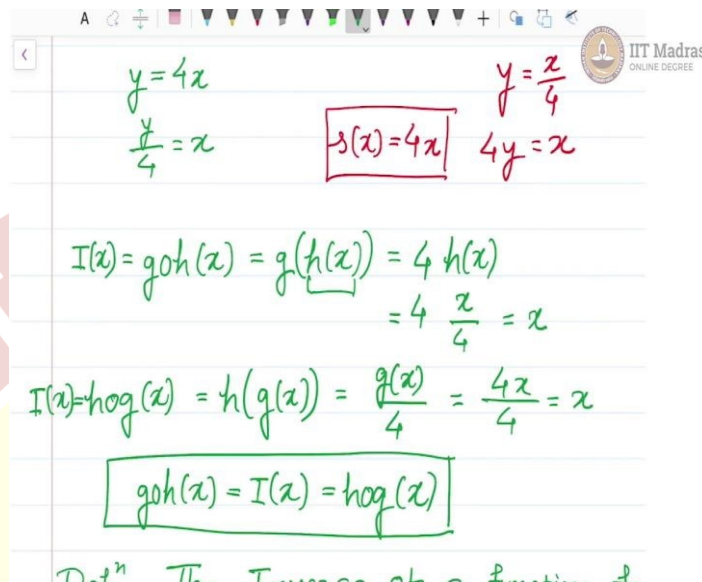 A
IIT Madras
ONLINE DEGREE
y = 4x
y/4 = x
s(x) = 4x
y = x/4
4y = x
I(x) = goh(x) = g(h(x)) = 4 h(x)
= 4 x/4 = x
I(x) = hog(x) = h(g(x)) = g(x)/4 = 4x/4 = x
goh(x) = I(x) = hog(x)